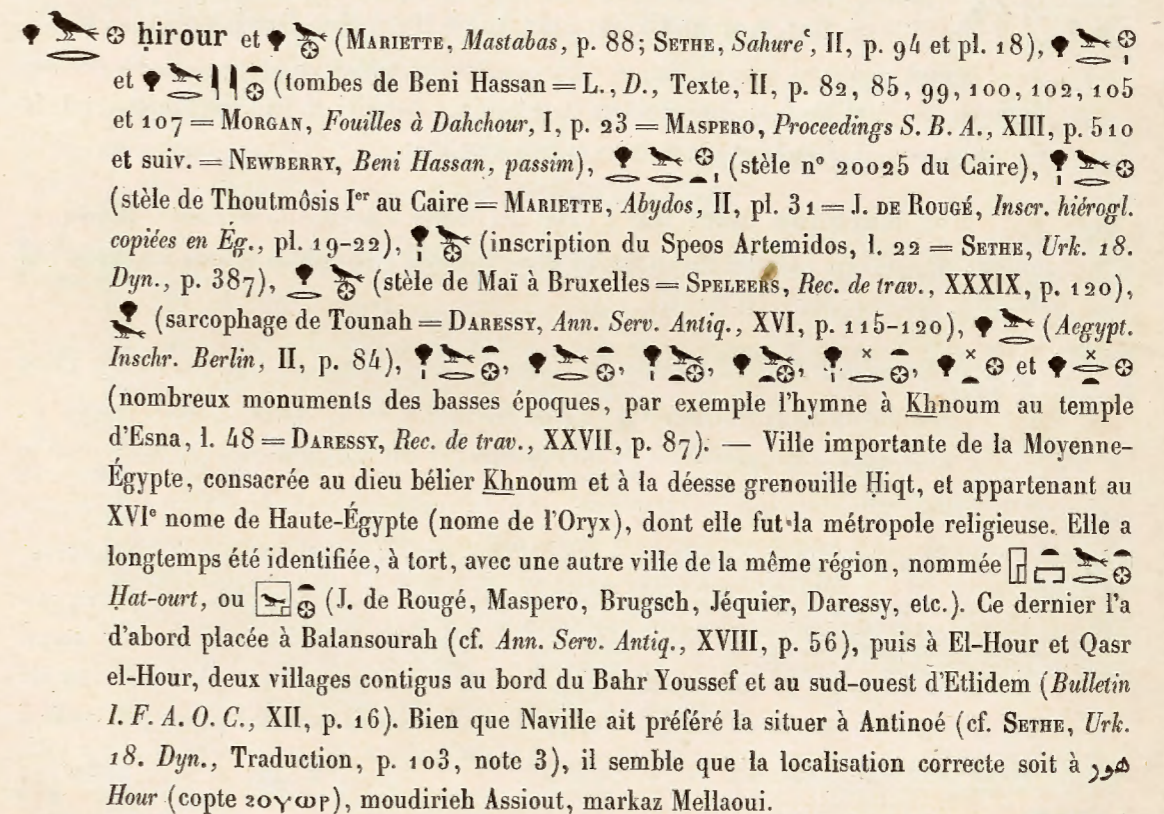 ḥirour et (MARIETTE, Mastabas, p. 88; SETHE, Sahureʿ, II, p. 94 et pl. 18),
et (tombes de Beni Hassan = L., D., Texte, II, p. 82, 85, 99, 100, 102, 105
et 107 = MORGAN, Fouilles à Dahchour, I, p. 23 = MASPERO, Proceedings S. B. A., XIII, p. 510
et suiv. = NEWBERRY, Beni Hassan, passim), (stèle n° 20025 du Caire),
(stèle de Thoutmôsis Iᵉʳ au Caire = MARIETTE, Abydos, II, pl. 31 = J. DE ROUGÉ, Inscr. hiérogl.
copiées en Ég., pl. 19-22), (inscription du Speos Artemidos, l. 22 = SETHE, Urk. 18.
Dyn., p. 387), (stèle de Maï à Bruxelles = SPELEERS, Rec. de trav., XXXIX, p. 120),
(sarcophage de Tounah = DARESSY, Ann. Serv. Antiq., XVI, p. 115-120), (Aegypt.
Inschr. Berlin, II, p. 84), , , , , , et
(nombreux monuments des basses époques, par exemple l'hymne à Khnoum au temple
d'Esna, l. 48 = DARESSY, Rec. de trav., XXVII, p. 87). — Ville importante de la Moyenne-
Égypte, consacrée au dieu bélier Khnoum et à la déesse grenouille Ḥiqt, et appartenant au
XVIᵉ nome de Haute-Égypte (nome de l'Oryx), dont elle fut la métropole religieuse. Elle a
longtemps été identifiée, à tort, avec une autre ville de la même région, nommée
Ḥat-ourt, ou (J. de Rougé, Maspero, Brugsch, Jéquier, Daressy, etc.). Ce dernier l'a
d'abord placée à Balansourah (cf. Ann. Serv. Antiq., XVIII, p. 56), puis à El-Hour et Qasr
el-Hour, deux villages contigus au bord du Bahr Youssef et au sud-ouest d'Etlidem (Bulletin
I. F. A. O. C., XII, p. 16). Bien que Naville ait préféré la situer à Antinoé (cf. SETHE, Urk.
18. Dyn., Traduction, p. 103, note 3), il semble que la localisation correcte soit à هور
Hour (copte ϩⲟⲩⲱⲣ), moudirieh Assiout, markaz Mellaoui.